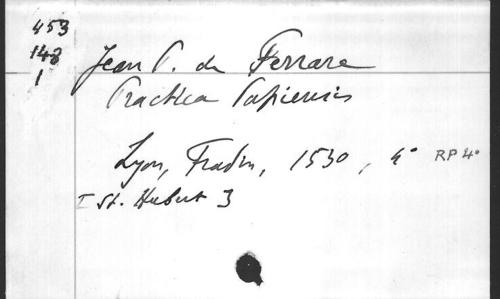 453
148
1
Jean P. de Ferrare
Practica Papiensis
Lyon, Fradin, 1530, 4° RP 4°
I St. Hubert 3